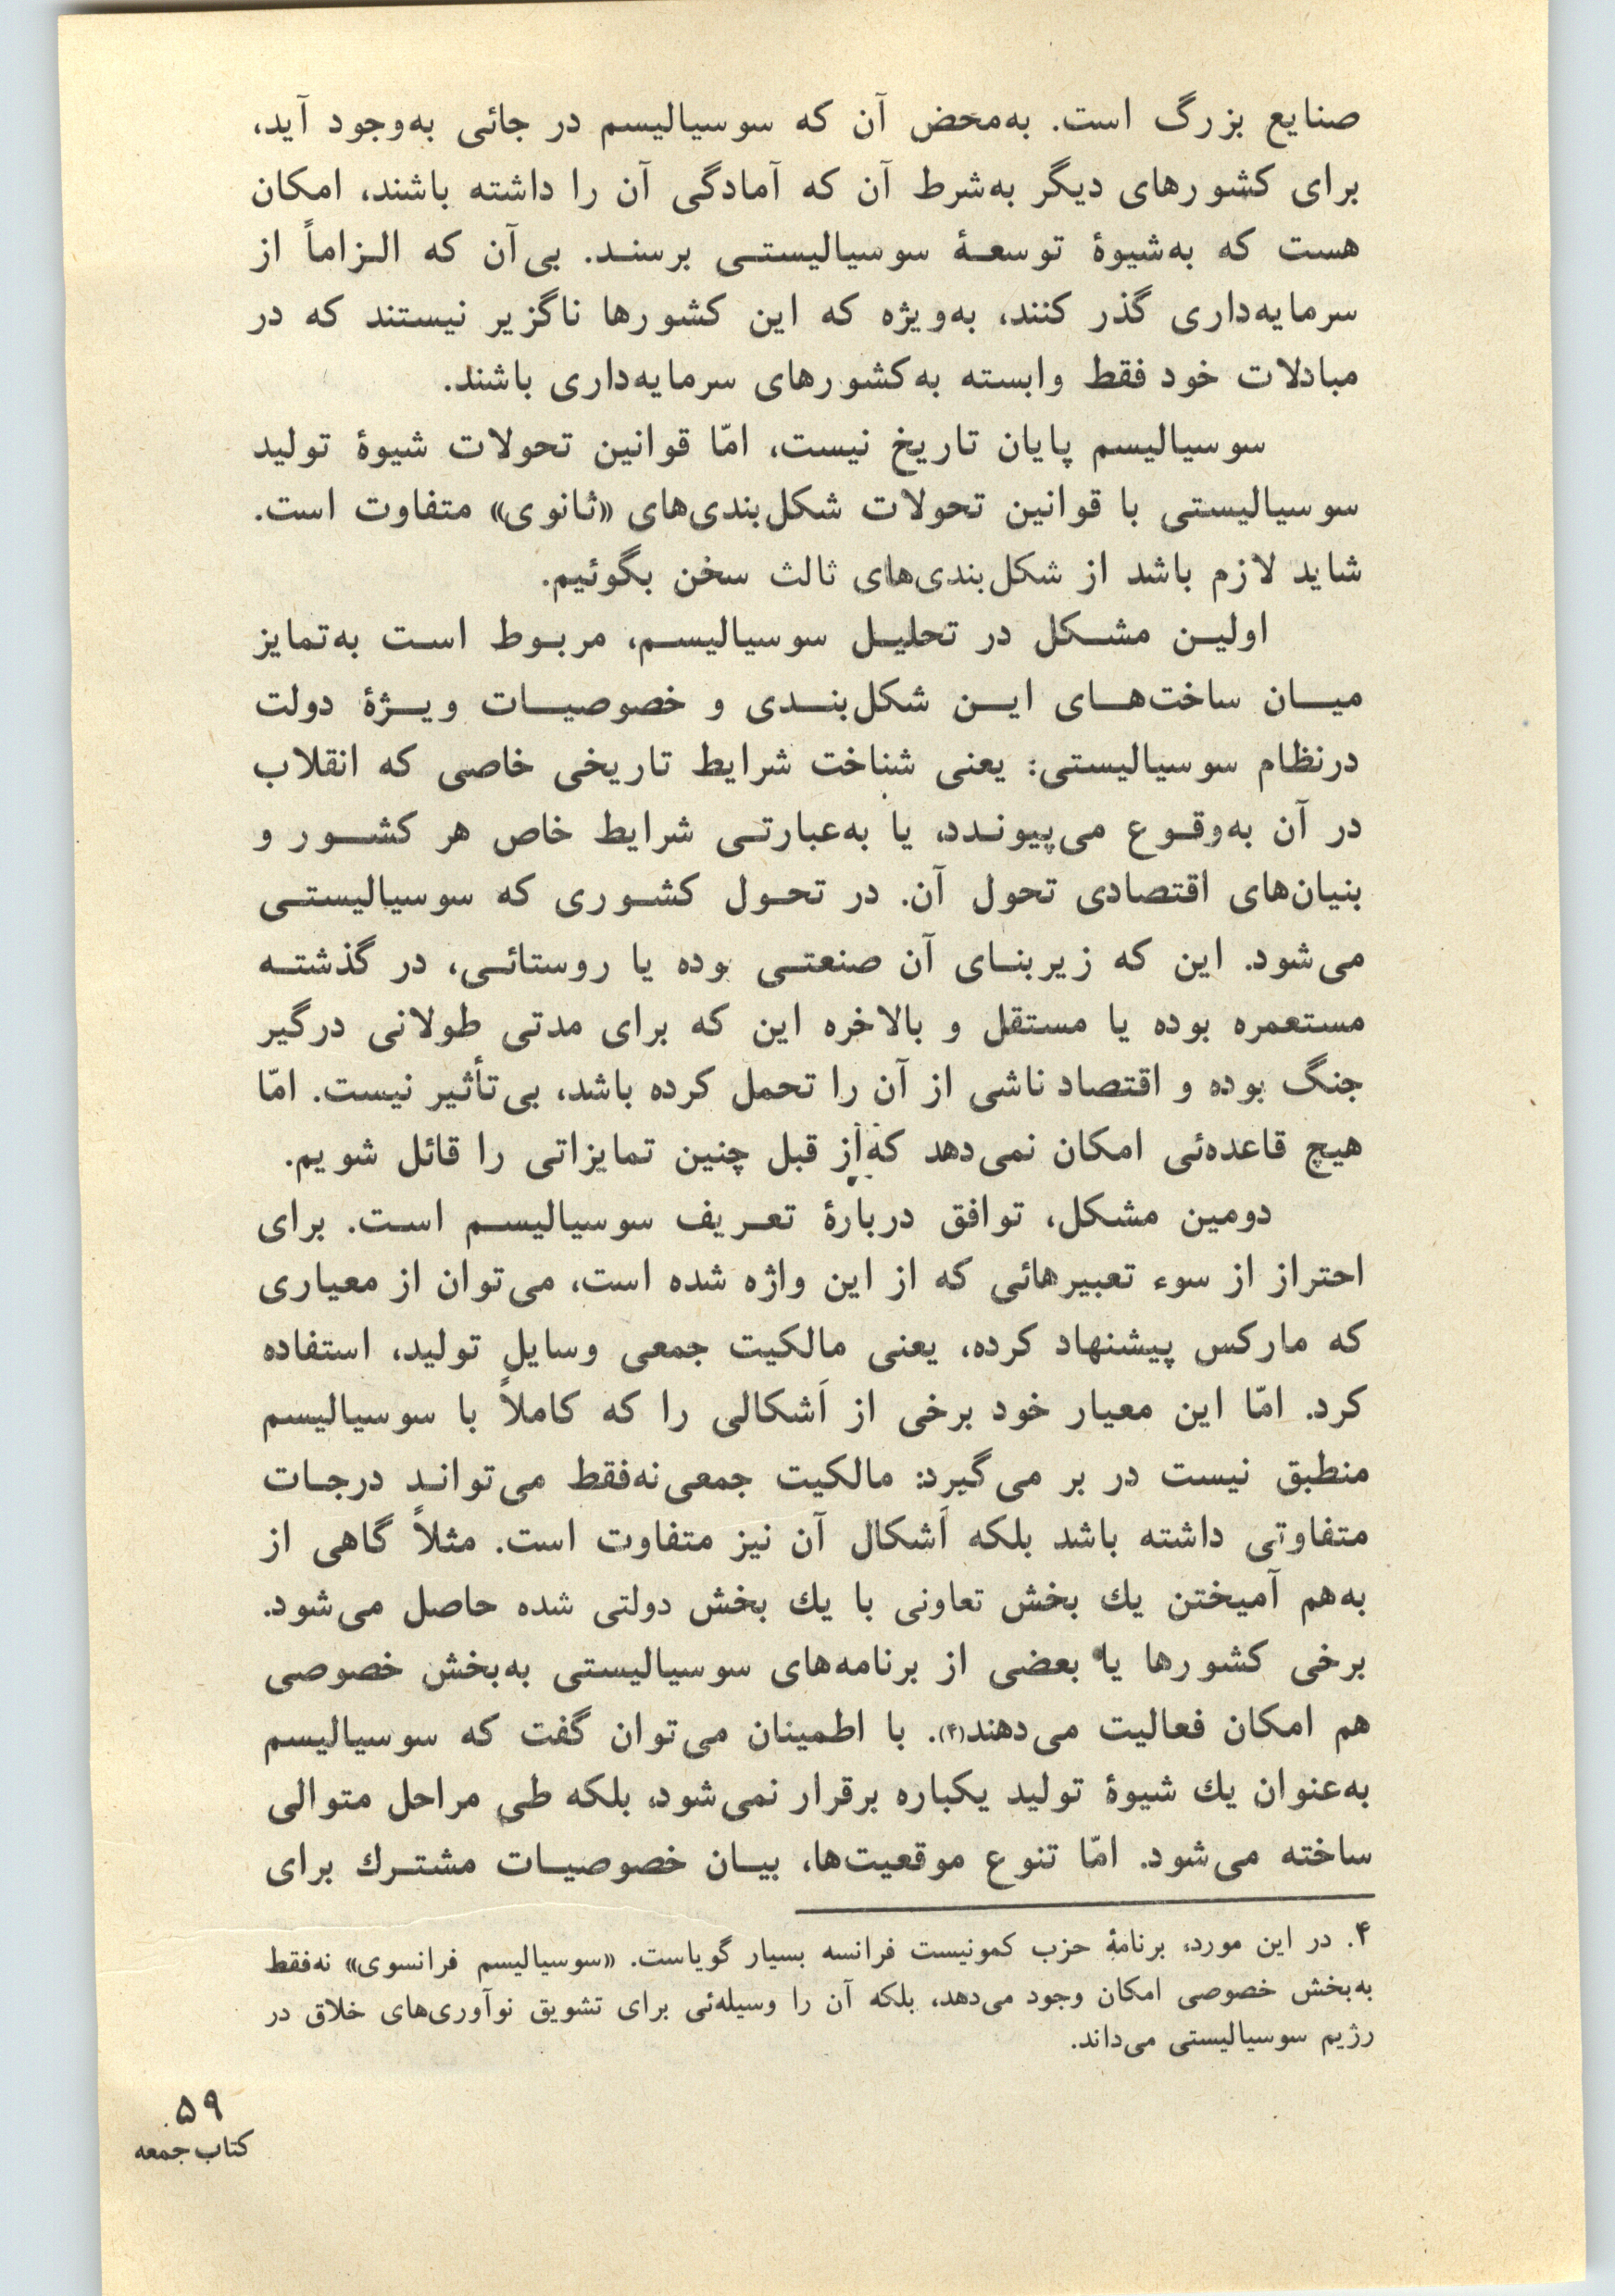 صنایع بزرگ است. به‌محض آن که سوسیالیسم در جائی به‌وجود آید،
برای کشورهای دیگر به‌شرط آن که آمادگی آن را داشته باشند، امکان
هست که به‌شیوهٔ توسعهٔ سوسیالیستی برسند. بی‌آن که الزاماً از
سرمایه‌داری گذر کنند، به‌ویژه که این کشورها ناگزیر نیستند که در
مبادلات خود فقط وابسته به‌کشورهای سرمایه‌داری باشند.
سوسیالیسم پایان تاریخ نیست، امّا قوانین تحولات شیوهٔ تولید
سوسیالیستی با قوانین تحولات شکل‌بندی‌های «ثانوی» متفاوت است.
شاید لازم باشد از شکل‌بندی‌های ثالث سخن بگوئیم.
اولین مشکل در تحلیل سوسیالیسم، مربوط است به‌تمایز
میان ساخت‌های این شکل‌بندی و خصوصیات ویژهٔ دولت
درنظام سوسیالیستی: یعنی شناخت شرایط تاریخی خاصی که انقلاب
در آن به‌وقوع می‌پیوندد، یا به‌عبارتی شرایط خاص هر کشور و
بنیان‌های اقتصادی تحول آن. در تحول کشوری که سوسیالیستی
می‌شود. این که زیربنای آن صنعتی بوده یا روستائی، در گذشته
مستعمره بوده یا مستقل و بالاخره این که برای مدتی طولانی درگیر
جنگ بوده و اقتصاد ناشی از آن را تحمل کرده باشد، بی‌تأثیر نیست. امّا
هیچ قاعده‌ئی امکان نمی‌دهد که از قبل چنین تمایزاتی را قائل شویم.
دومین مشکل، توافق دربارهٔ تعریف سوسیالیسم است. برای
احتراز از سوء تعبیرهائی که از این واژه شده است، می‌توان از معیاری
که مارکس پیشنهاد کرده، یعنی مالکیت جمعی وسایل تولید، استفاده
کرد. امّا این معیار خود برخی از اَشکالی را که کاملاً با سوسیالیسم
منطبق نیست در بر می‌گیرد: مالکیت جمعی نه‌فقط می‌تواند درجات
متفاوتی داشته باشد بلکه اَشکال آن نیز متفاوت است. مثلاً گاهی از
به‌هم آمیختن یك بخش تعاونی با یك بخش دولتی شده حاصل می‌شود.
برخی کشورها یا بعضی از برنامه‌های سوسیالیستی به‌بخش خصوصی
هم امکان فعالیت می‌دهند(۴). با اطمینان می‌توان گفت که سوسیالیسم
به‌عنوان یك شیوهٔ تولید یکباره برقرار نمی‌شود، بلکه طی مراحل متوالی
ساخته می‌شود. امّا تنوع موقعیت‌ها، بیان خصوصیات مشترك برای
۴. در این مورد، برنامهٔ حزب کمونیست فرانسه بسیار گویاست. «سوسیالیسم فرانسوی» نه‌فقط
به‌بخش خصوصی امکان وجود می‌دهد، بلکه آن را وسیله‌ئی برای تشویق نوآوری‌های خلاق در
رژیم سوسیالیستی می‌داند.
۵۹
کتاب جمعه